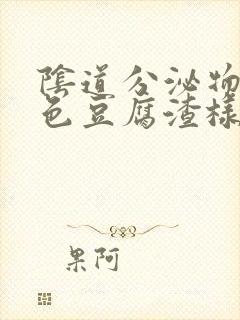 陰道分泌物
色豆腐渣樣
果阿